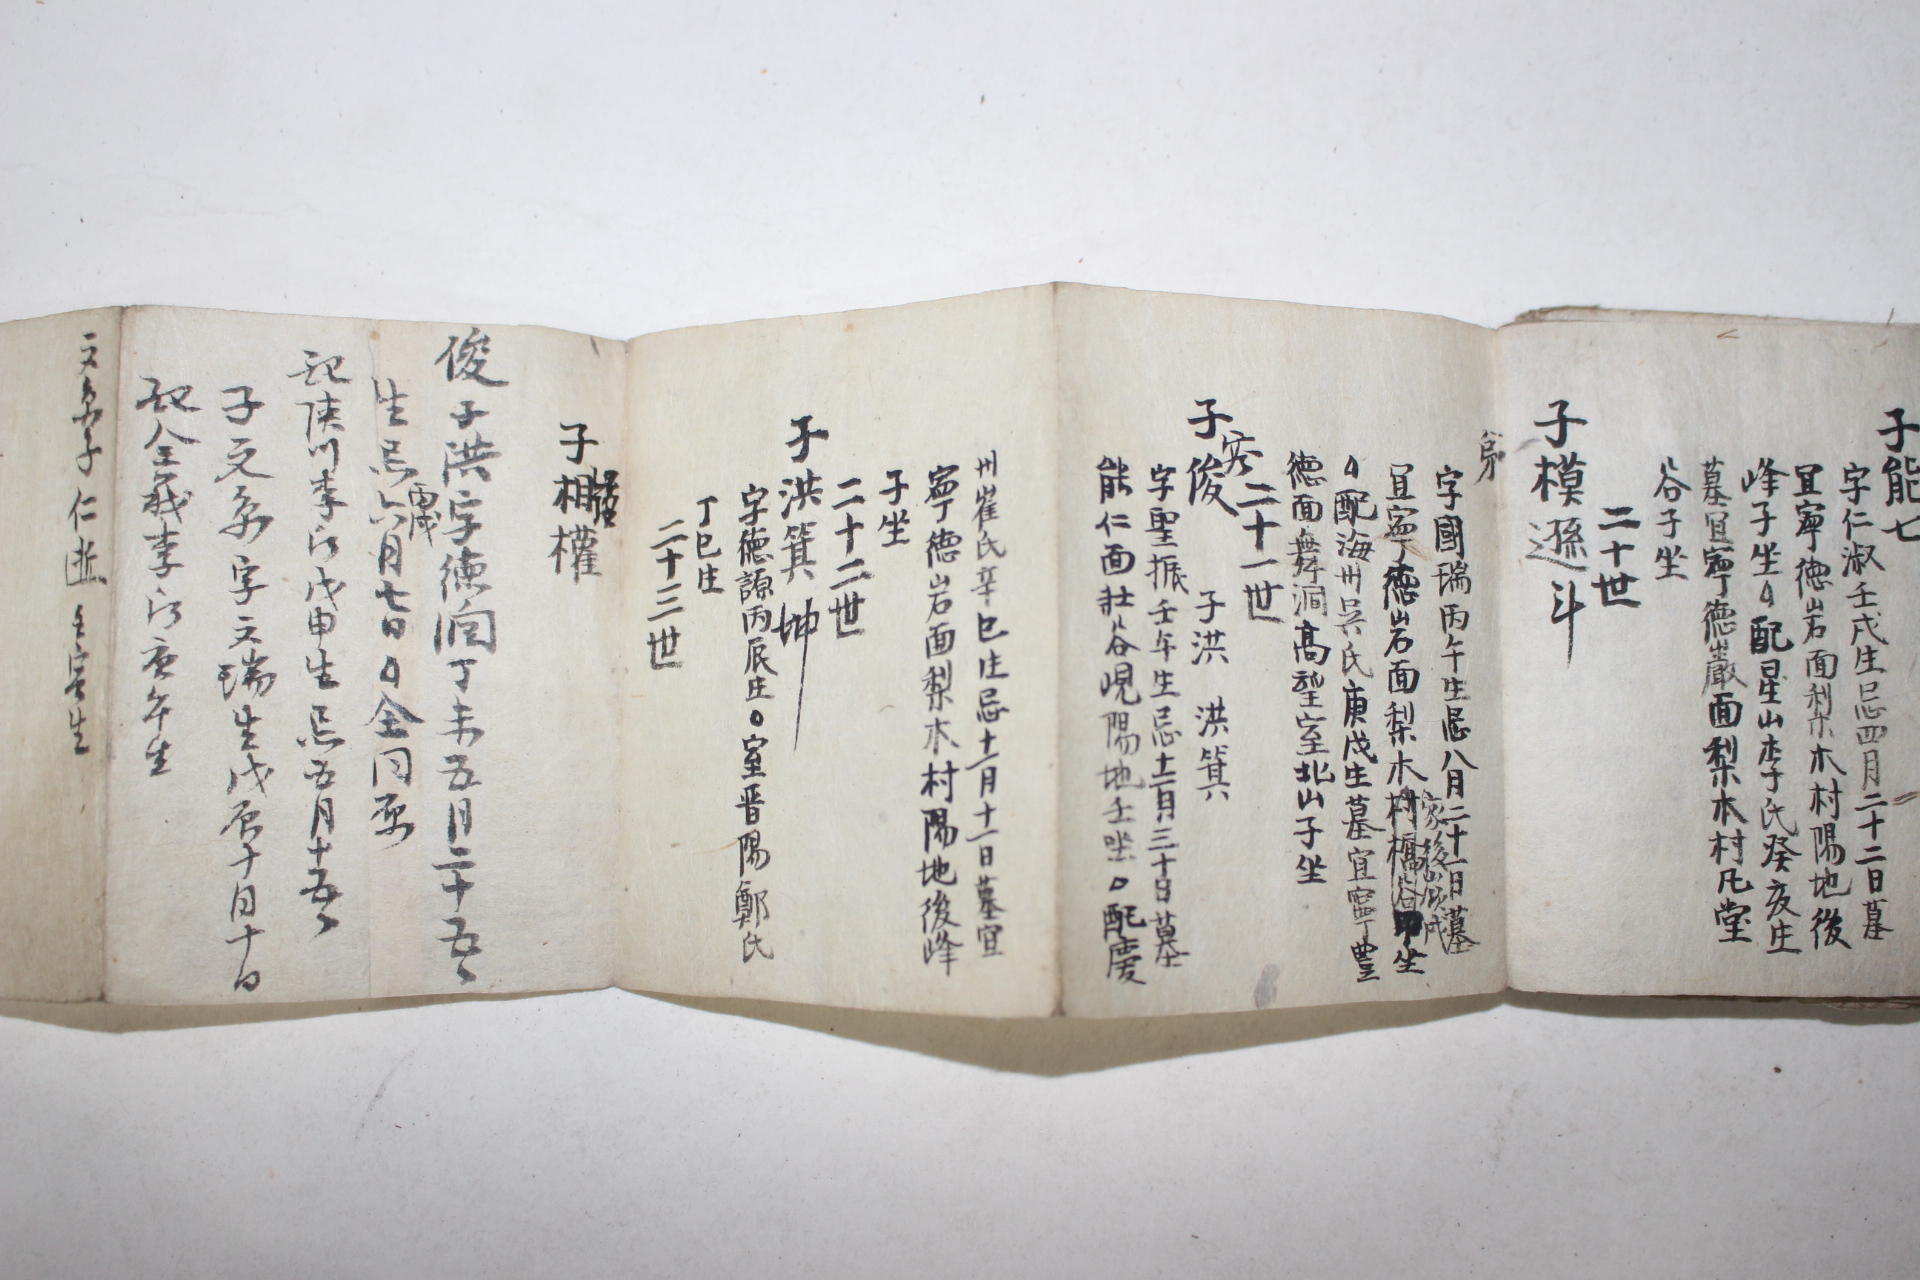 子能七
字仁淑壬戌生忌四月二十二日墓
宜寧德岩面梨木村陽地後
峰子坐○配星山李氏癸亥生
墓宜寧德巖面梨木村凡堂
谷子坐
二十世
子模遜斗
字國瑞丙午生忌八月二十一日墓
宜寧德岩面梨木村 谷 坐
家後
○配海州吳氏庚戌生墓宜寧豊
德面舞洞高望室北山子坐
二十一世
子俊 子洪 洪箕
字聖振壬午生忌十二月三十日墓
能仁面社谷峴陽地壬坐○配慶
州崔氏辛巳生忌十一月十一日墓宜
寧德岩面梨木村陽地後峰
子坐
二十二世
子洪箕坤
字德謙丙辰生○室晋陽鄭氏
丁巳生
二十三世
子相權
俊子洪字德潤丁未五月二十五
生忌六月七日○仝同原
戊
配陜川李氏戊申生忌五月十五
子文 字文瑞生戊辰十月十日
配全義李氏庚午生
文 子仁 壬寅生